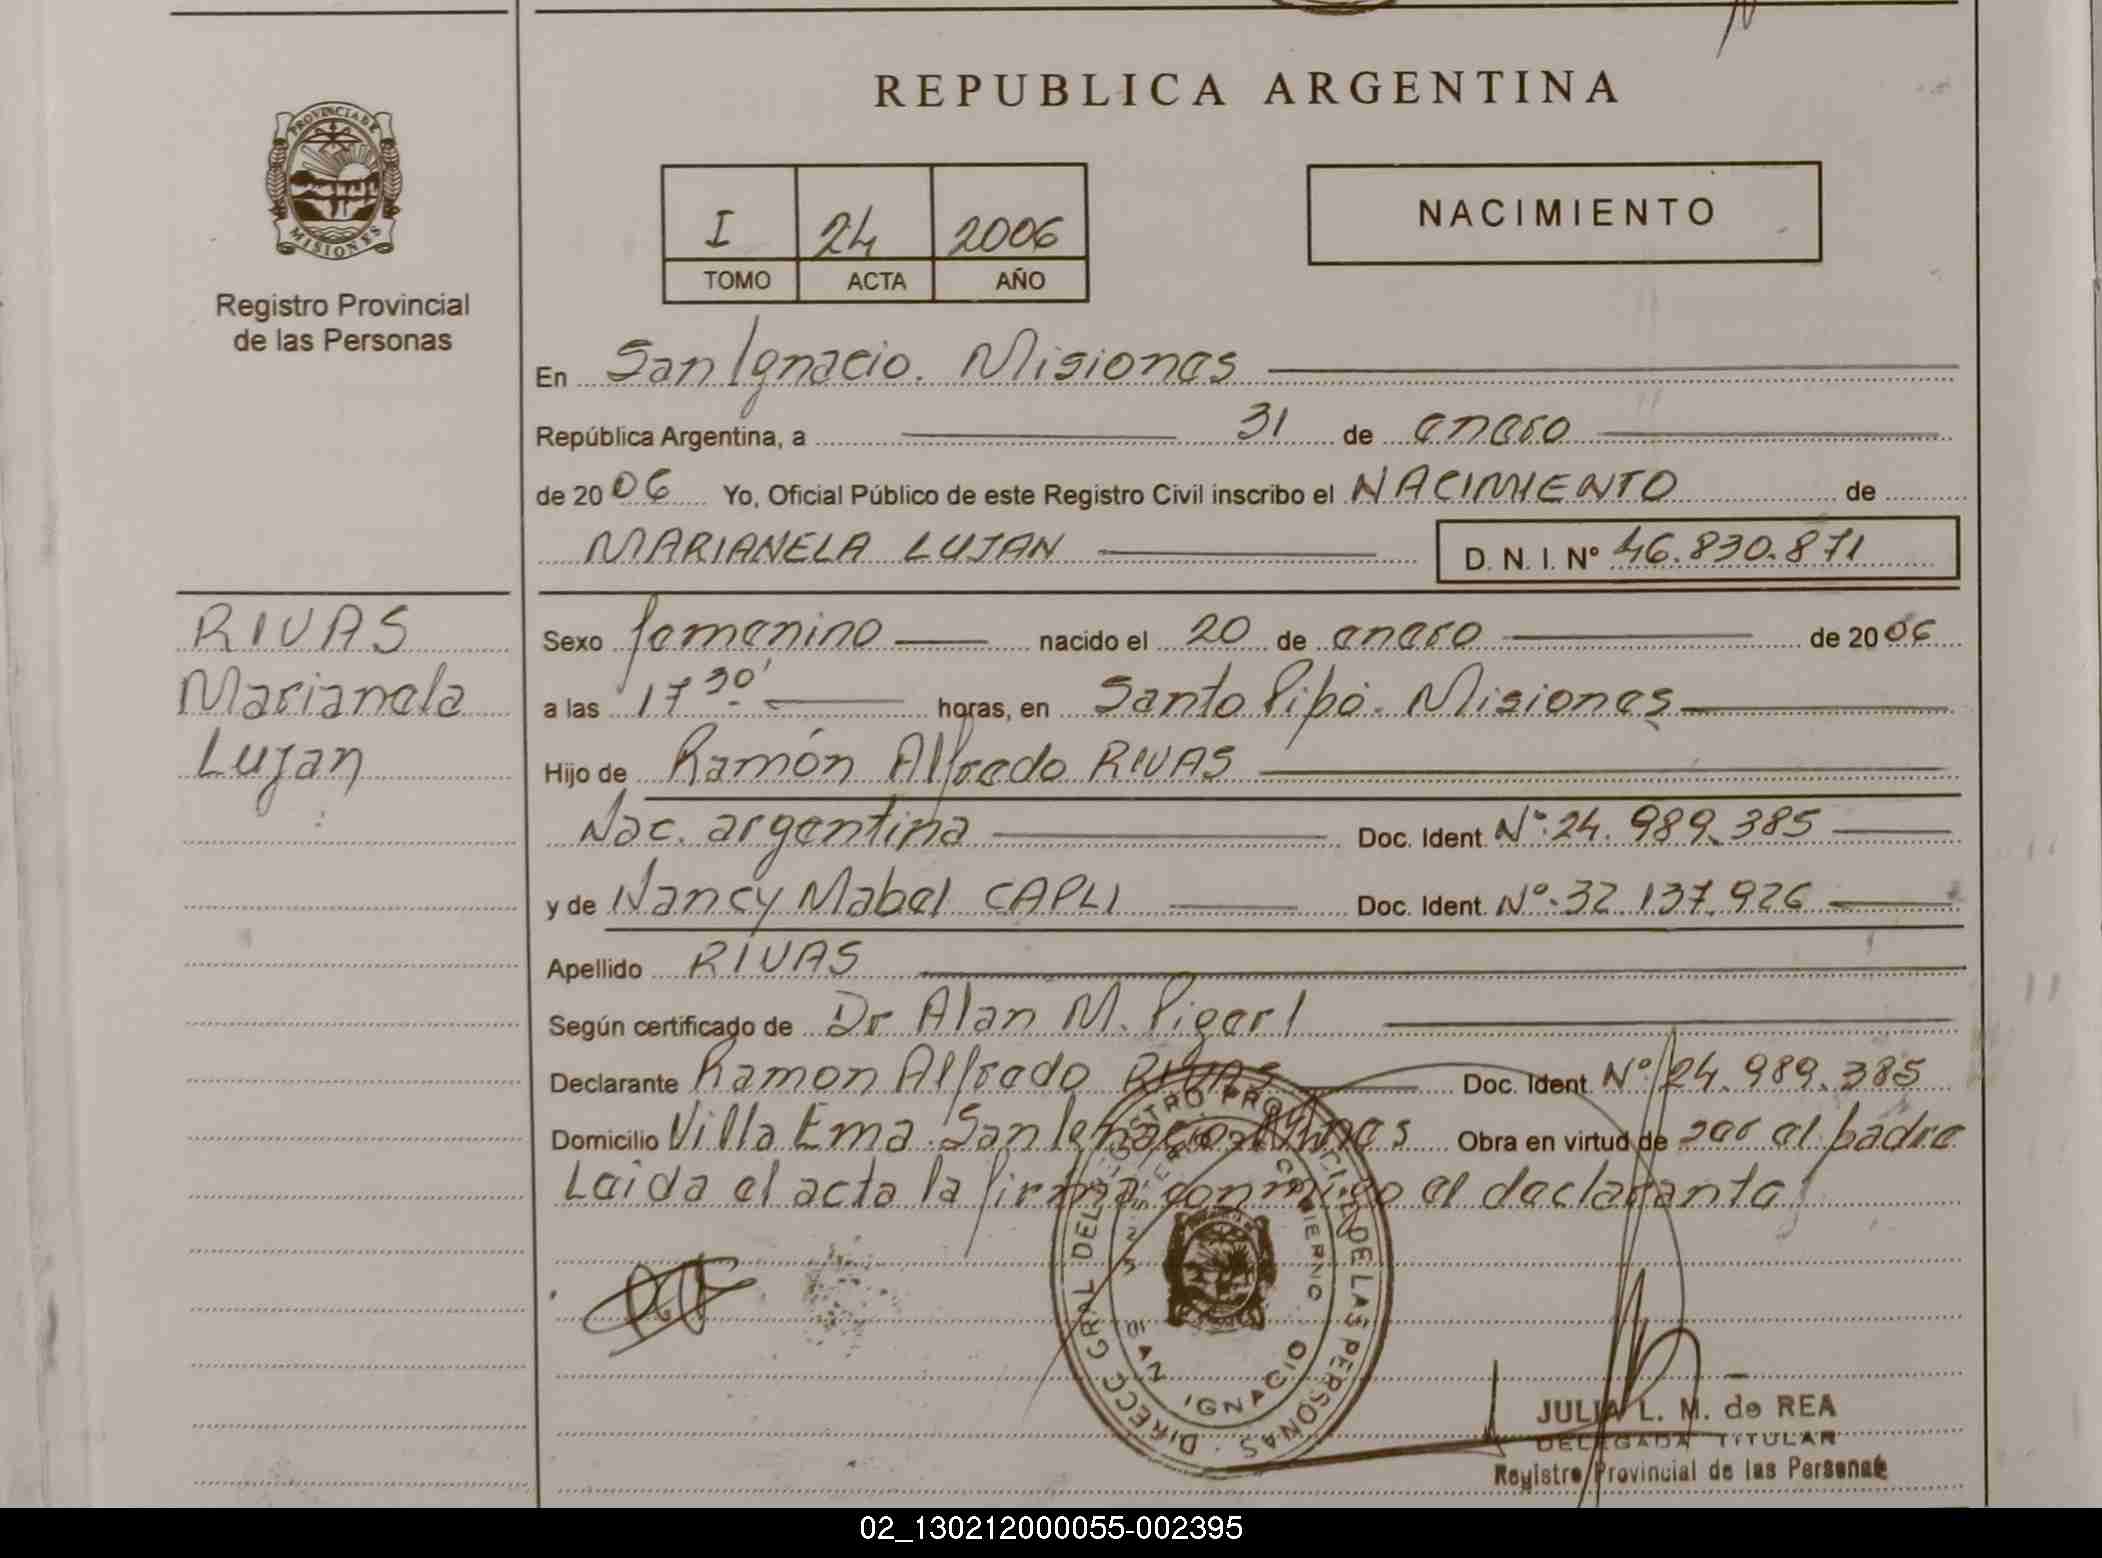 REPUBLICA ARGENTINA
PROVINCIA DE
MISIONES
Registro Provincial
de las Personas
I 24 2006
TOMO ACTA AÑO
NACIMIENTO
En San Ignacio. Misiones
República Argentina, a 31 de enero
de 2006 Yo, Oficial Público de este Registro Civil inscribo el NACIMIENTO de
MARIANELA LUJAN D. N. I. Nº 46.830.871
RIVAS
Marianela
Lujan
Sexo femenino nacido el 20 de enero de 2006
a las 17 30' horas, en Santo Pipó. Misiones
Hijo de Ramón Alfredo RIVAS
Nac. argentina Doc. Ident. Nº: 24.989.385
y de Nancy Mabel CAPLI Doc. Ident. Nº: 32.137.926
Apellido RIVAS
Según certificado de Dr Alan M. Pigerl
Declarante Ramon Alfredo RIVAS Doc. Ident. Nº 24.989.385
Domicilio Villa Ema. San Ignacio. Mnes Obra en virtud de ser el padre
Leida el acta la firma conmigo el declarante
DIRECC. GRAL. DEL REGISTRO PROVINCIAL DE LAS PERSONAS
SAN IGNACIO
JULIA L. M. de REA
DELEGADA TITULAR
Registro Provincial de las Personas
02_130212000055-002395